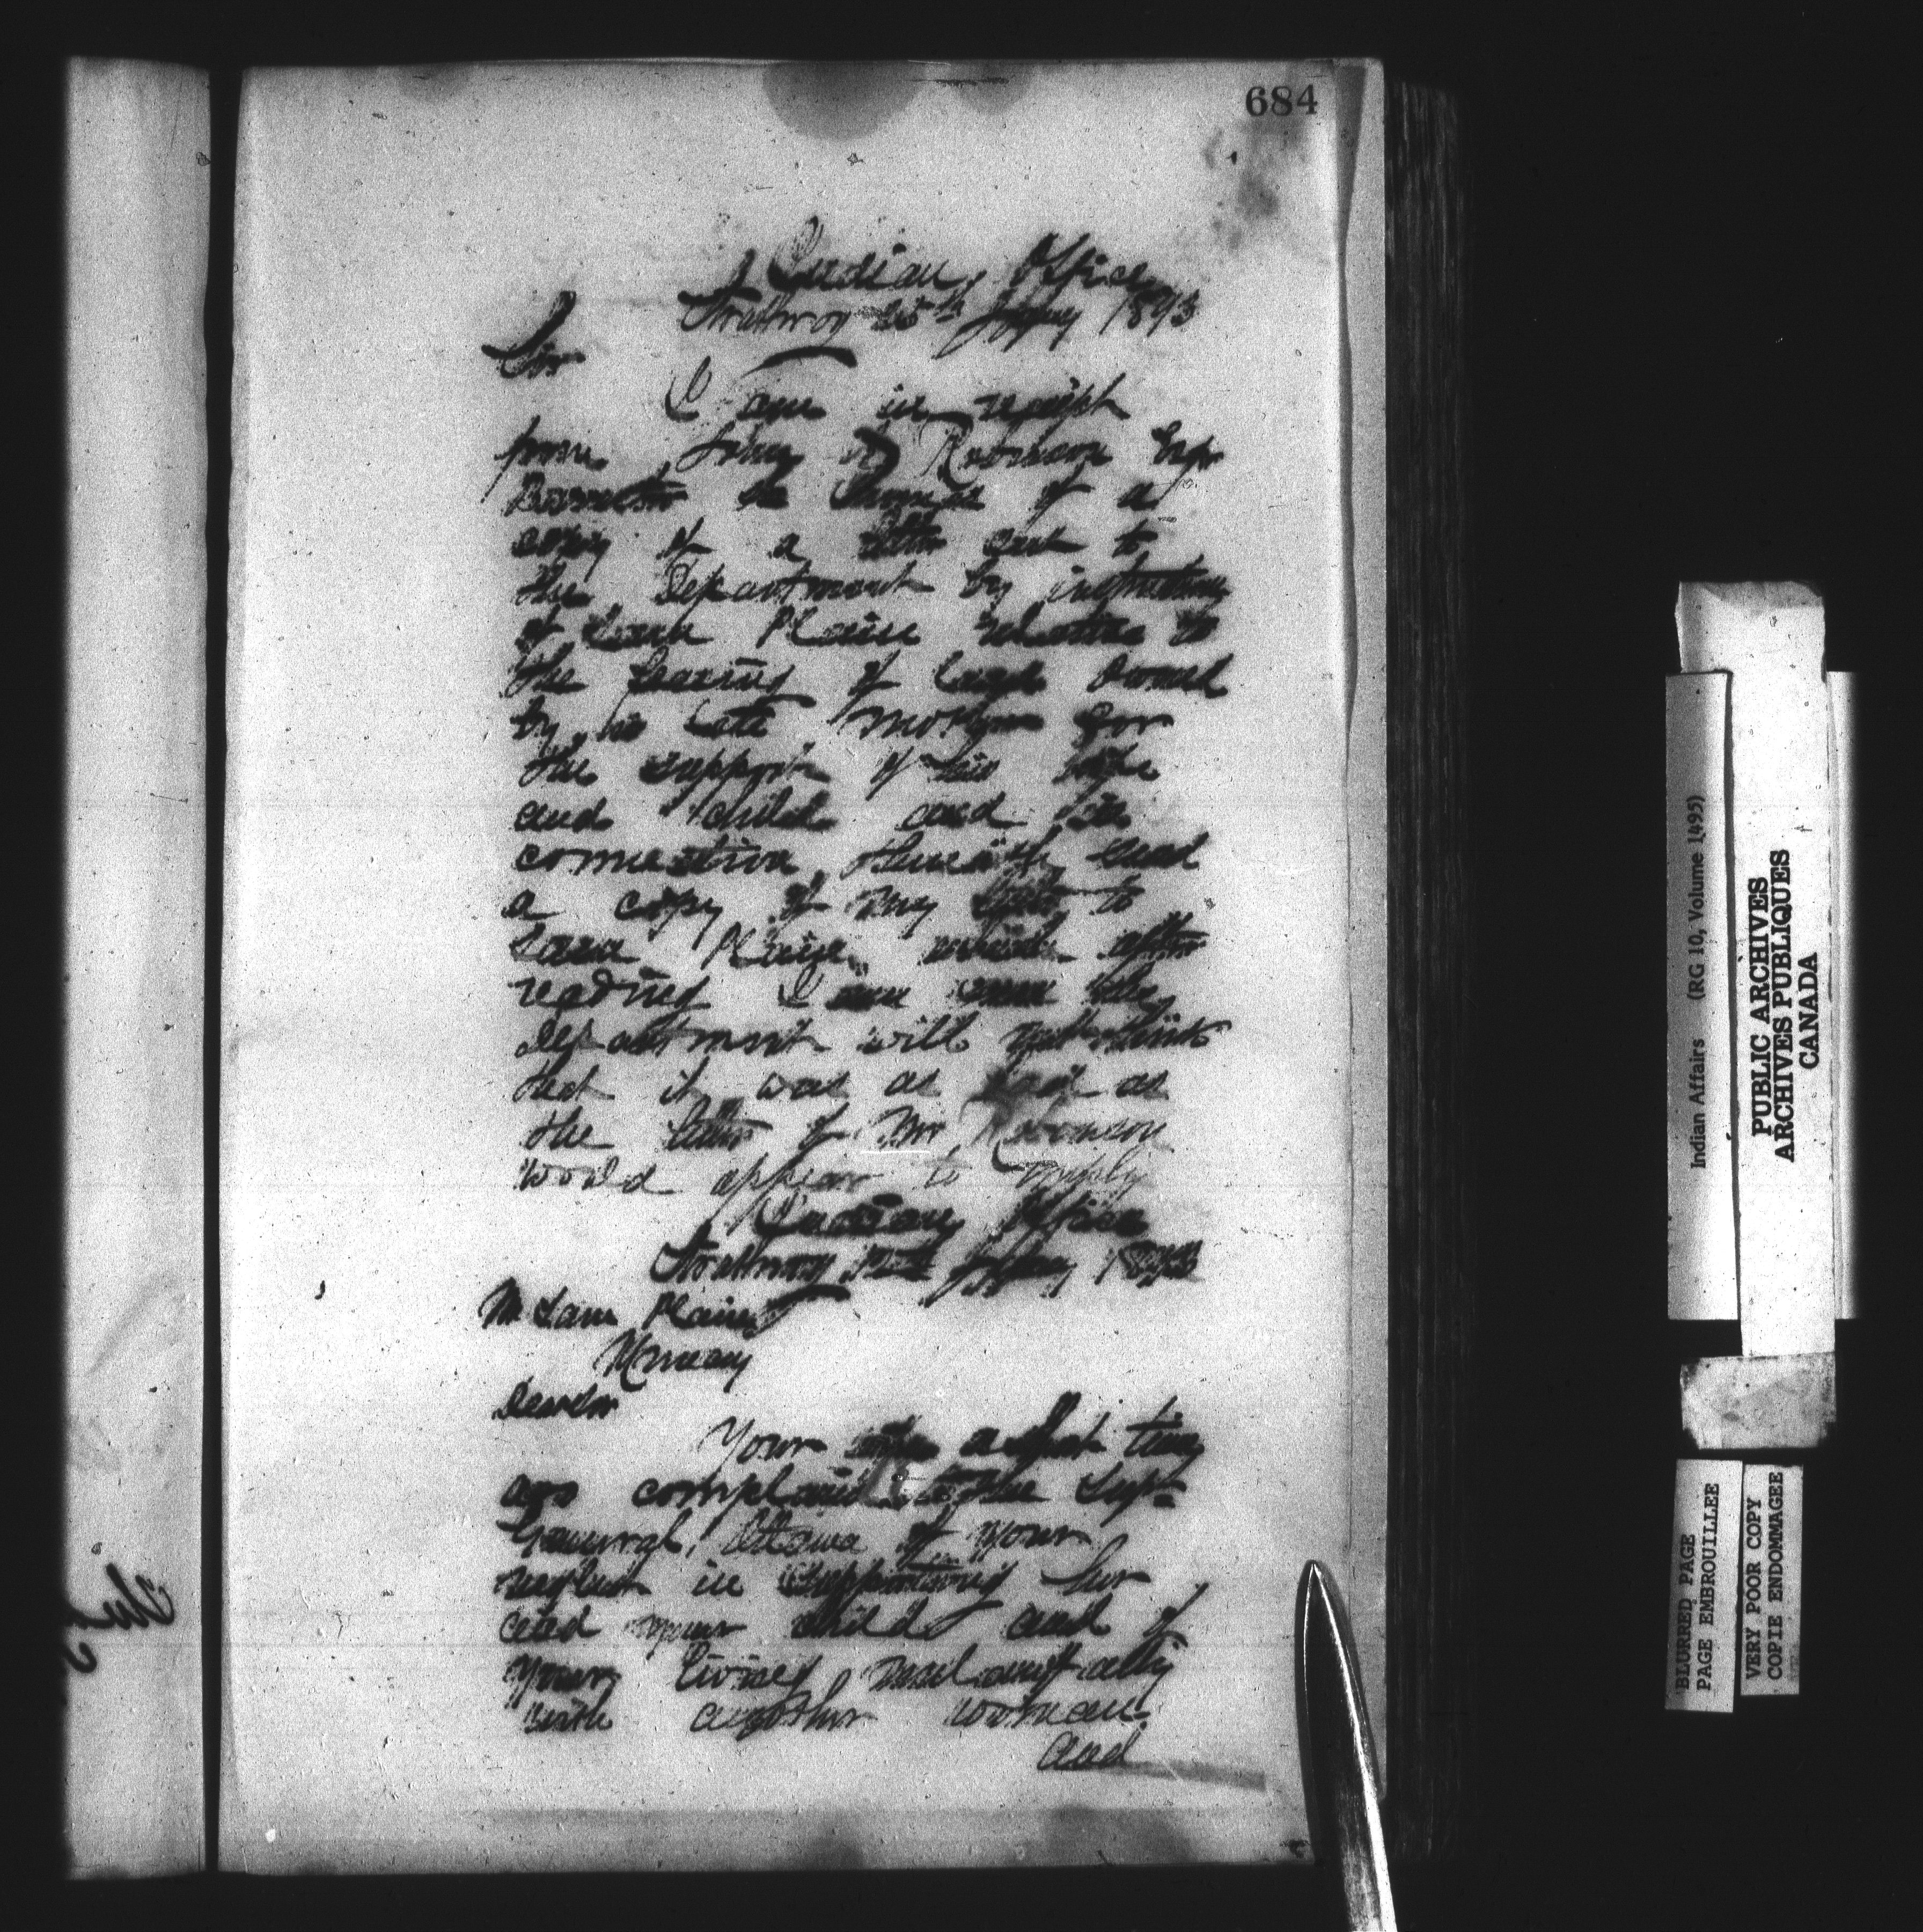 684
Indian Office
Strathroy 25th 1893
Sir
I am in receipt
from John A Robinson Esqr
Barrister of a
copy of a letter sent to
the Department by
of Sam Plain relative to
the leasing of land owned
by his late mother for
the support of his wife
and child and in
connection therewith send
a copy of my letter to
Sam Plain which after
reading I am sure the
department will not think
that it was as as
the letter of Mr Robinson
would appear to imply
Indian Office
Strathroy 1893
Mr Sam Plain
Dear Sir
Your wife a short time
ago complained to the Supt
General, Ottawa of your
neglect in supporting her
and your child and of
your living
with another woman
and
Indian Affairs (RG 10, Volume 1495)
PUBLIC ARCHIVES
ARCHIVES PUBLIQUES
CANADA
BLURRED PAGE
PAGE EMBROUILLEE
VERY POOR COPY
COPIE ENDOMMAGEE